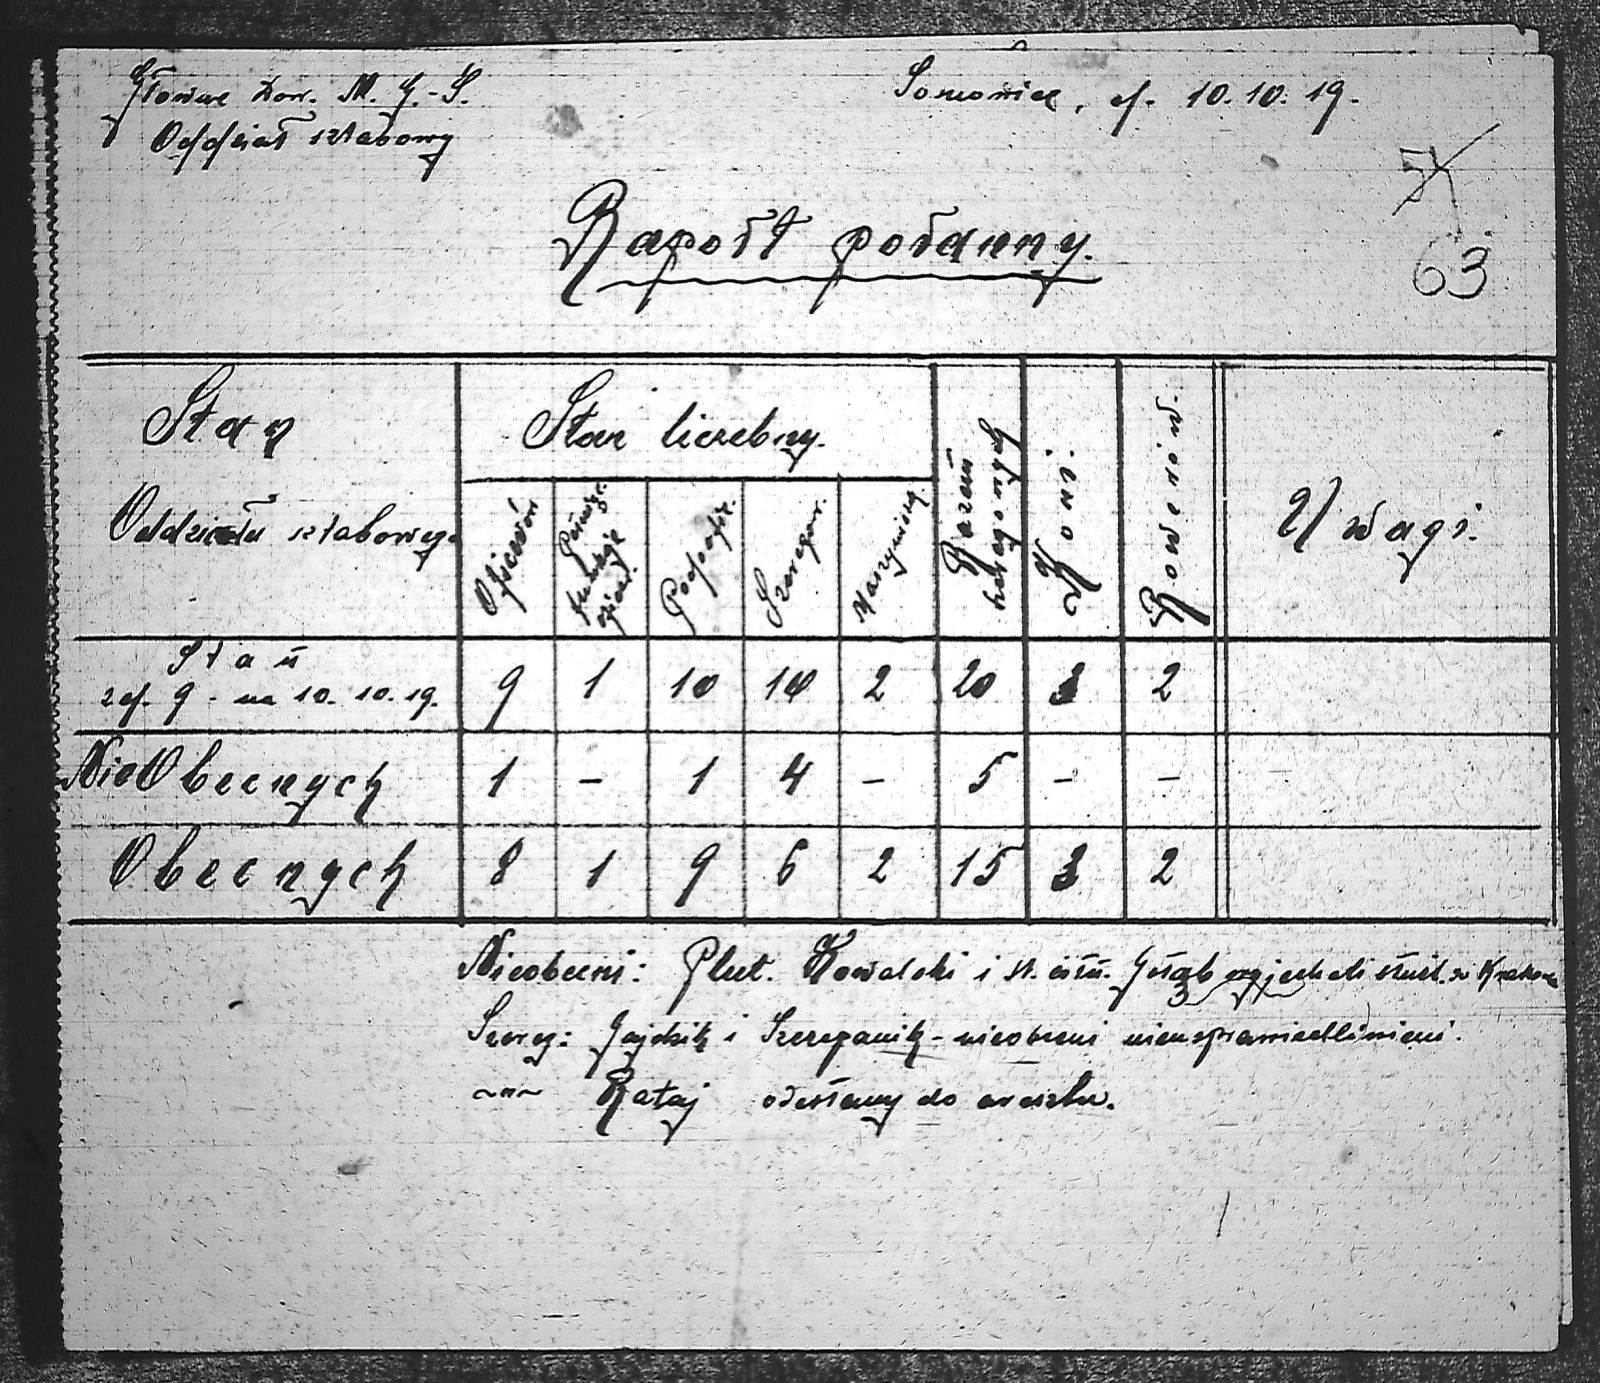 Główne Dow. M. G.-S.
Oddział sztabowy
Sosnowice, d. 10.10.19.
63
Raport poranny.
Stan
Oddziału sztabowego
Stan liczebny.
Oficerów
Podofic.
Szeregow.
Maszynistek
Razem
Koni
Rowerów.
Uwagi.
Stan
z d. 9 - na 10. 10. 19.
9 1 10 10 2 20 3 2
Nieobecnych 1 - 1 4 - 5 - -
Obecnych 8 1 9 6 2 15 3 2
Nieobecni: Plut. Kowalski i st. Gołąb wyjechali służb. w Krakow
Szereg: Gajdzik i Szczepanik - nieobecni nieusprawiedliwieni.
~"~ Rataj odesłany do aresztu.